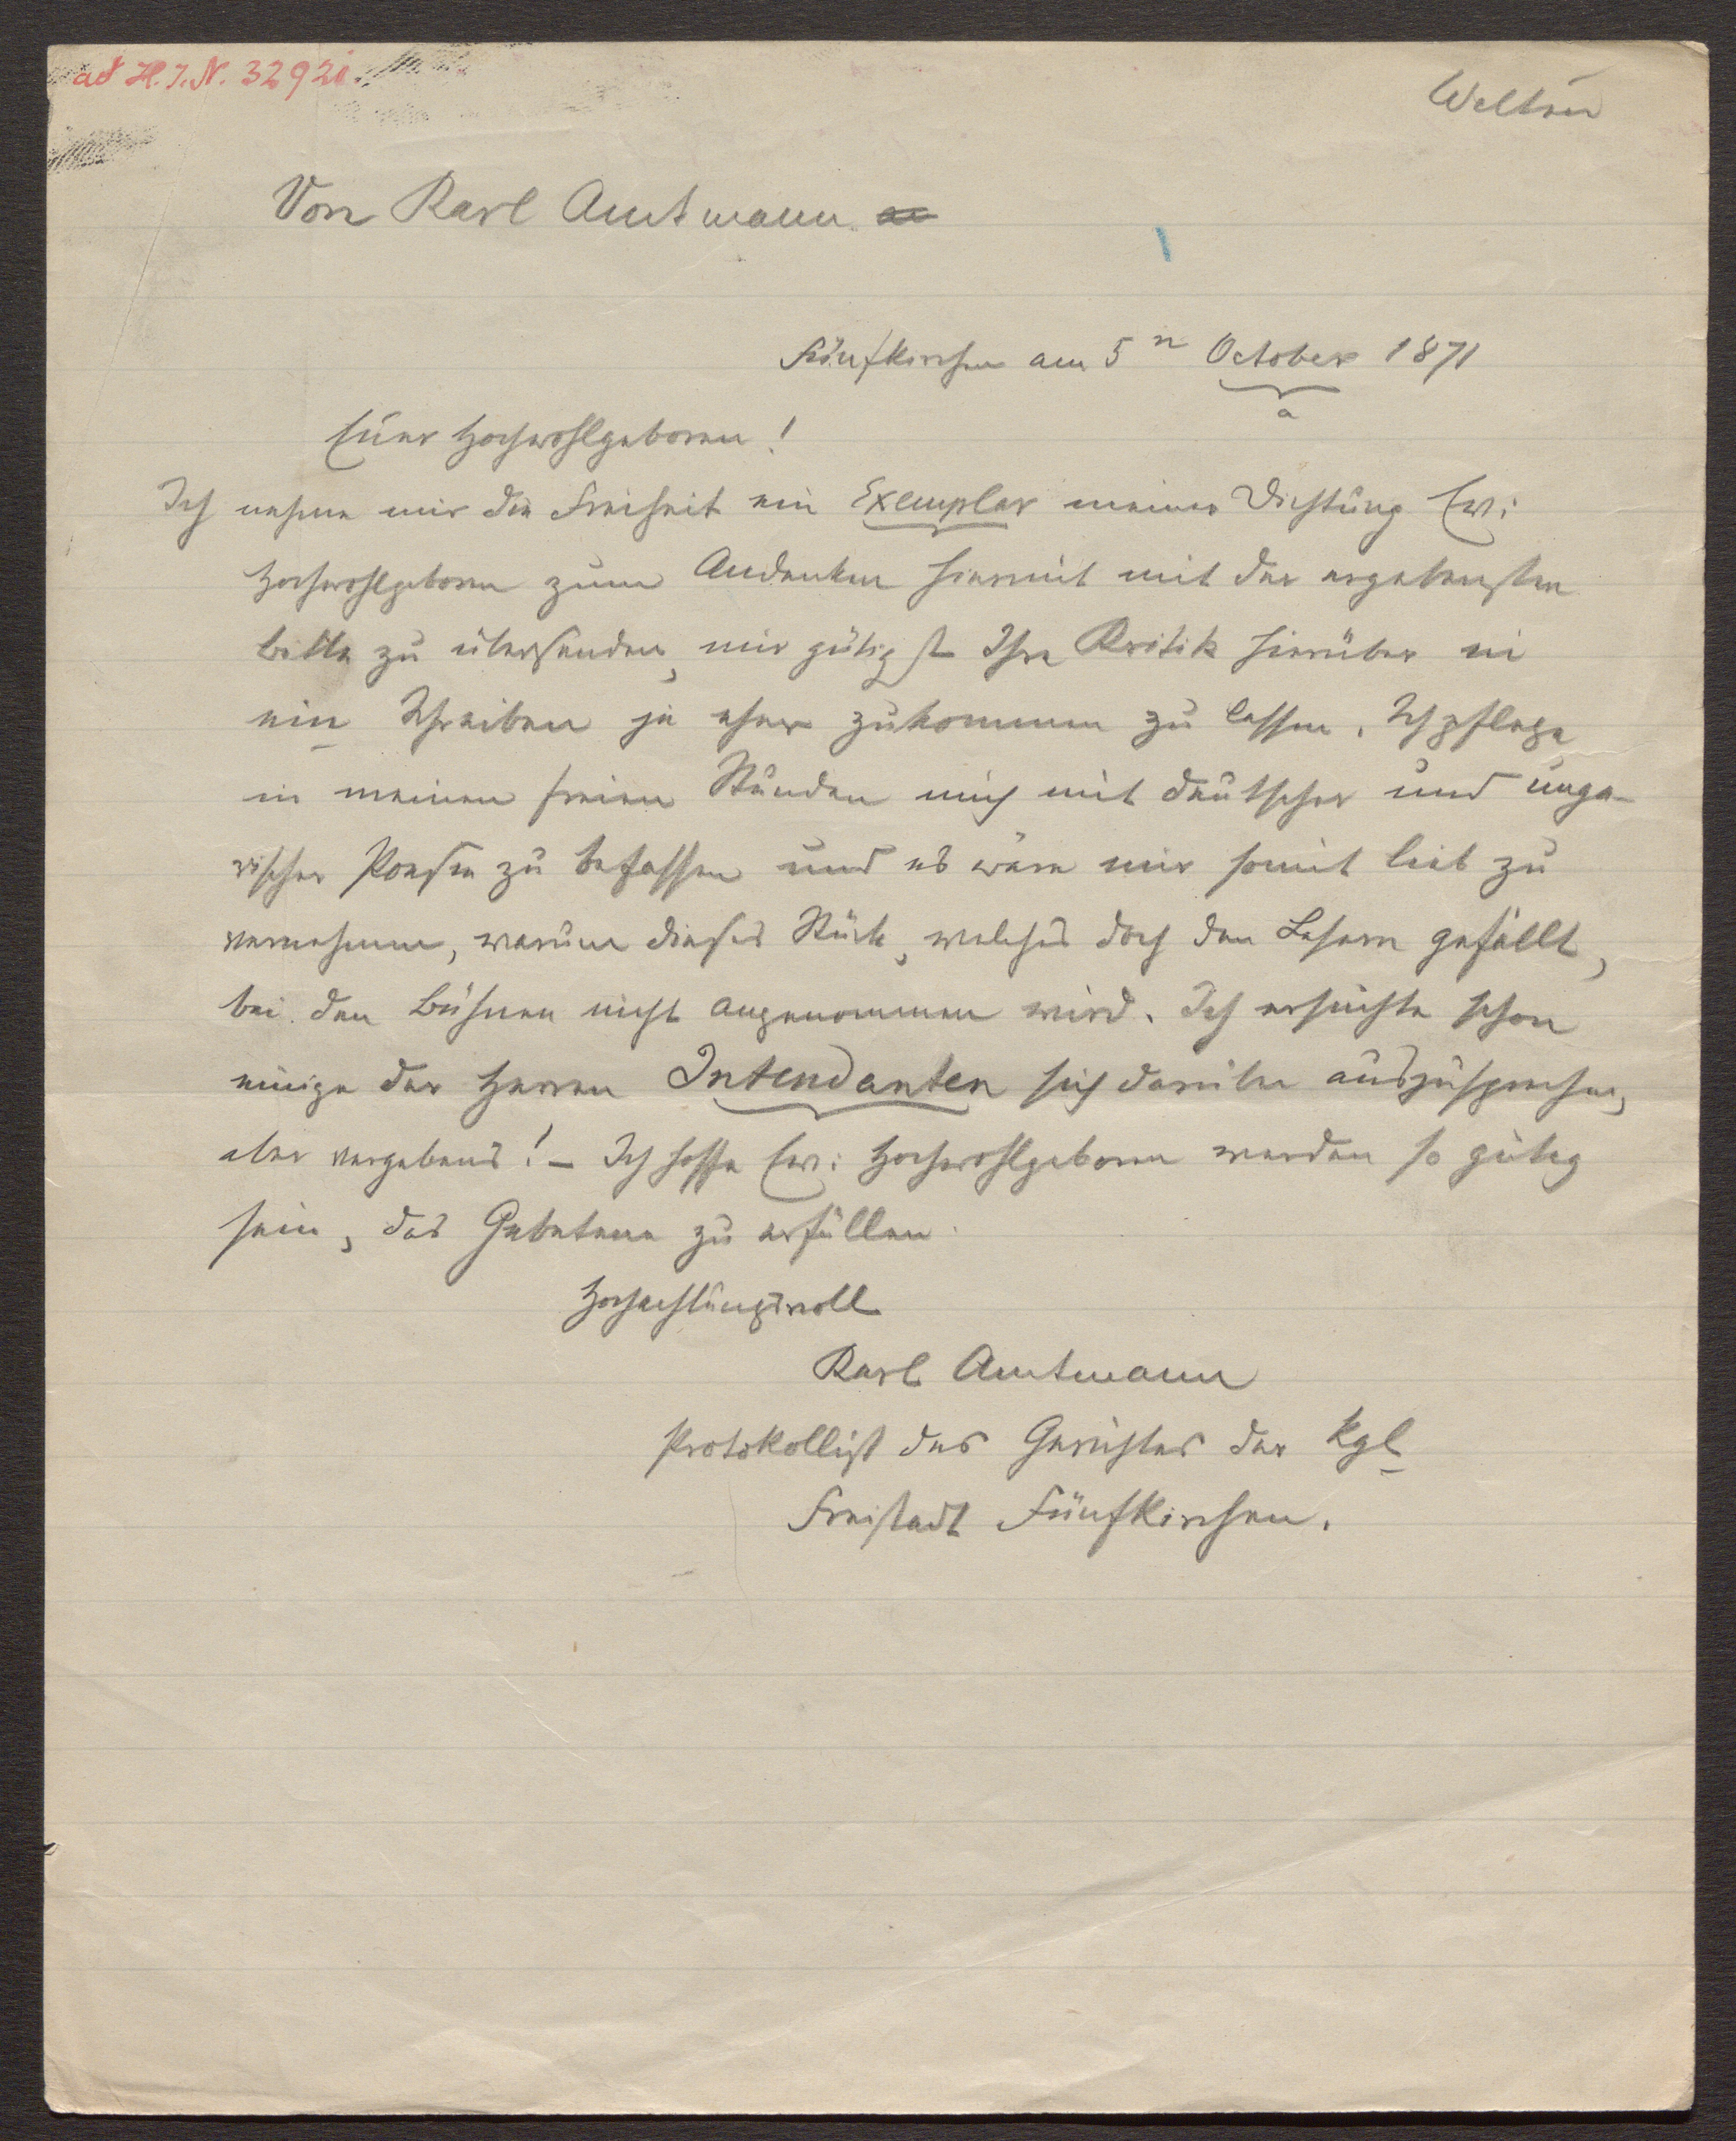 ad H.I.N. 32920.
Weltner
Von Karl Amtmann
Fünfkirchen am 5n October 1871
a
Euer Hochwohlgeboren!
Ich nehme mir die Freiheit ein Exemplar meiner Dichtung Ew:
Hochwohlgeboren zum Andenken hiermit mit der ergebensten
Bitte zu übersenden, mir gütigst Ihre Kritik hierüber in
ein Schreiben je eher zukommen zu lassen. Ich pflege
in meinen freien Stunden mich mit deutscher und unga-
rischer Poesie zu befassen und es wäre mir somit lieb zu
vernehmen, warum dieses Stück, welches doch den Lesern gefällt,
bei den Bühnen nicht angenommen wird. Ich ersuchte schon
einige der Herren Intendanten sich darüber auszusprechen,
aber vergebens! – Ich hoffe Ew: Hochwohlgeboren werden so gütig
sein, das Gebetene zu erfüllen.
Hochachtungsvoll
Karl Amtmann
Protokollist des Gerichtes der kgl
Freistadt Fünfkirchen.